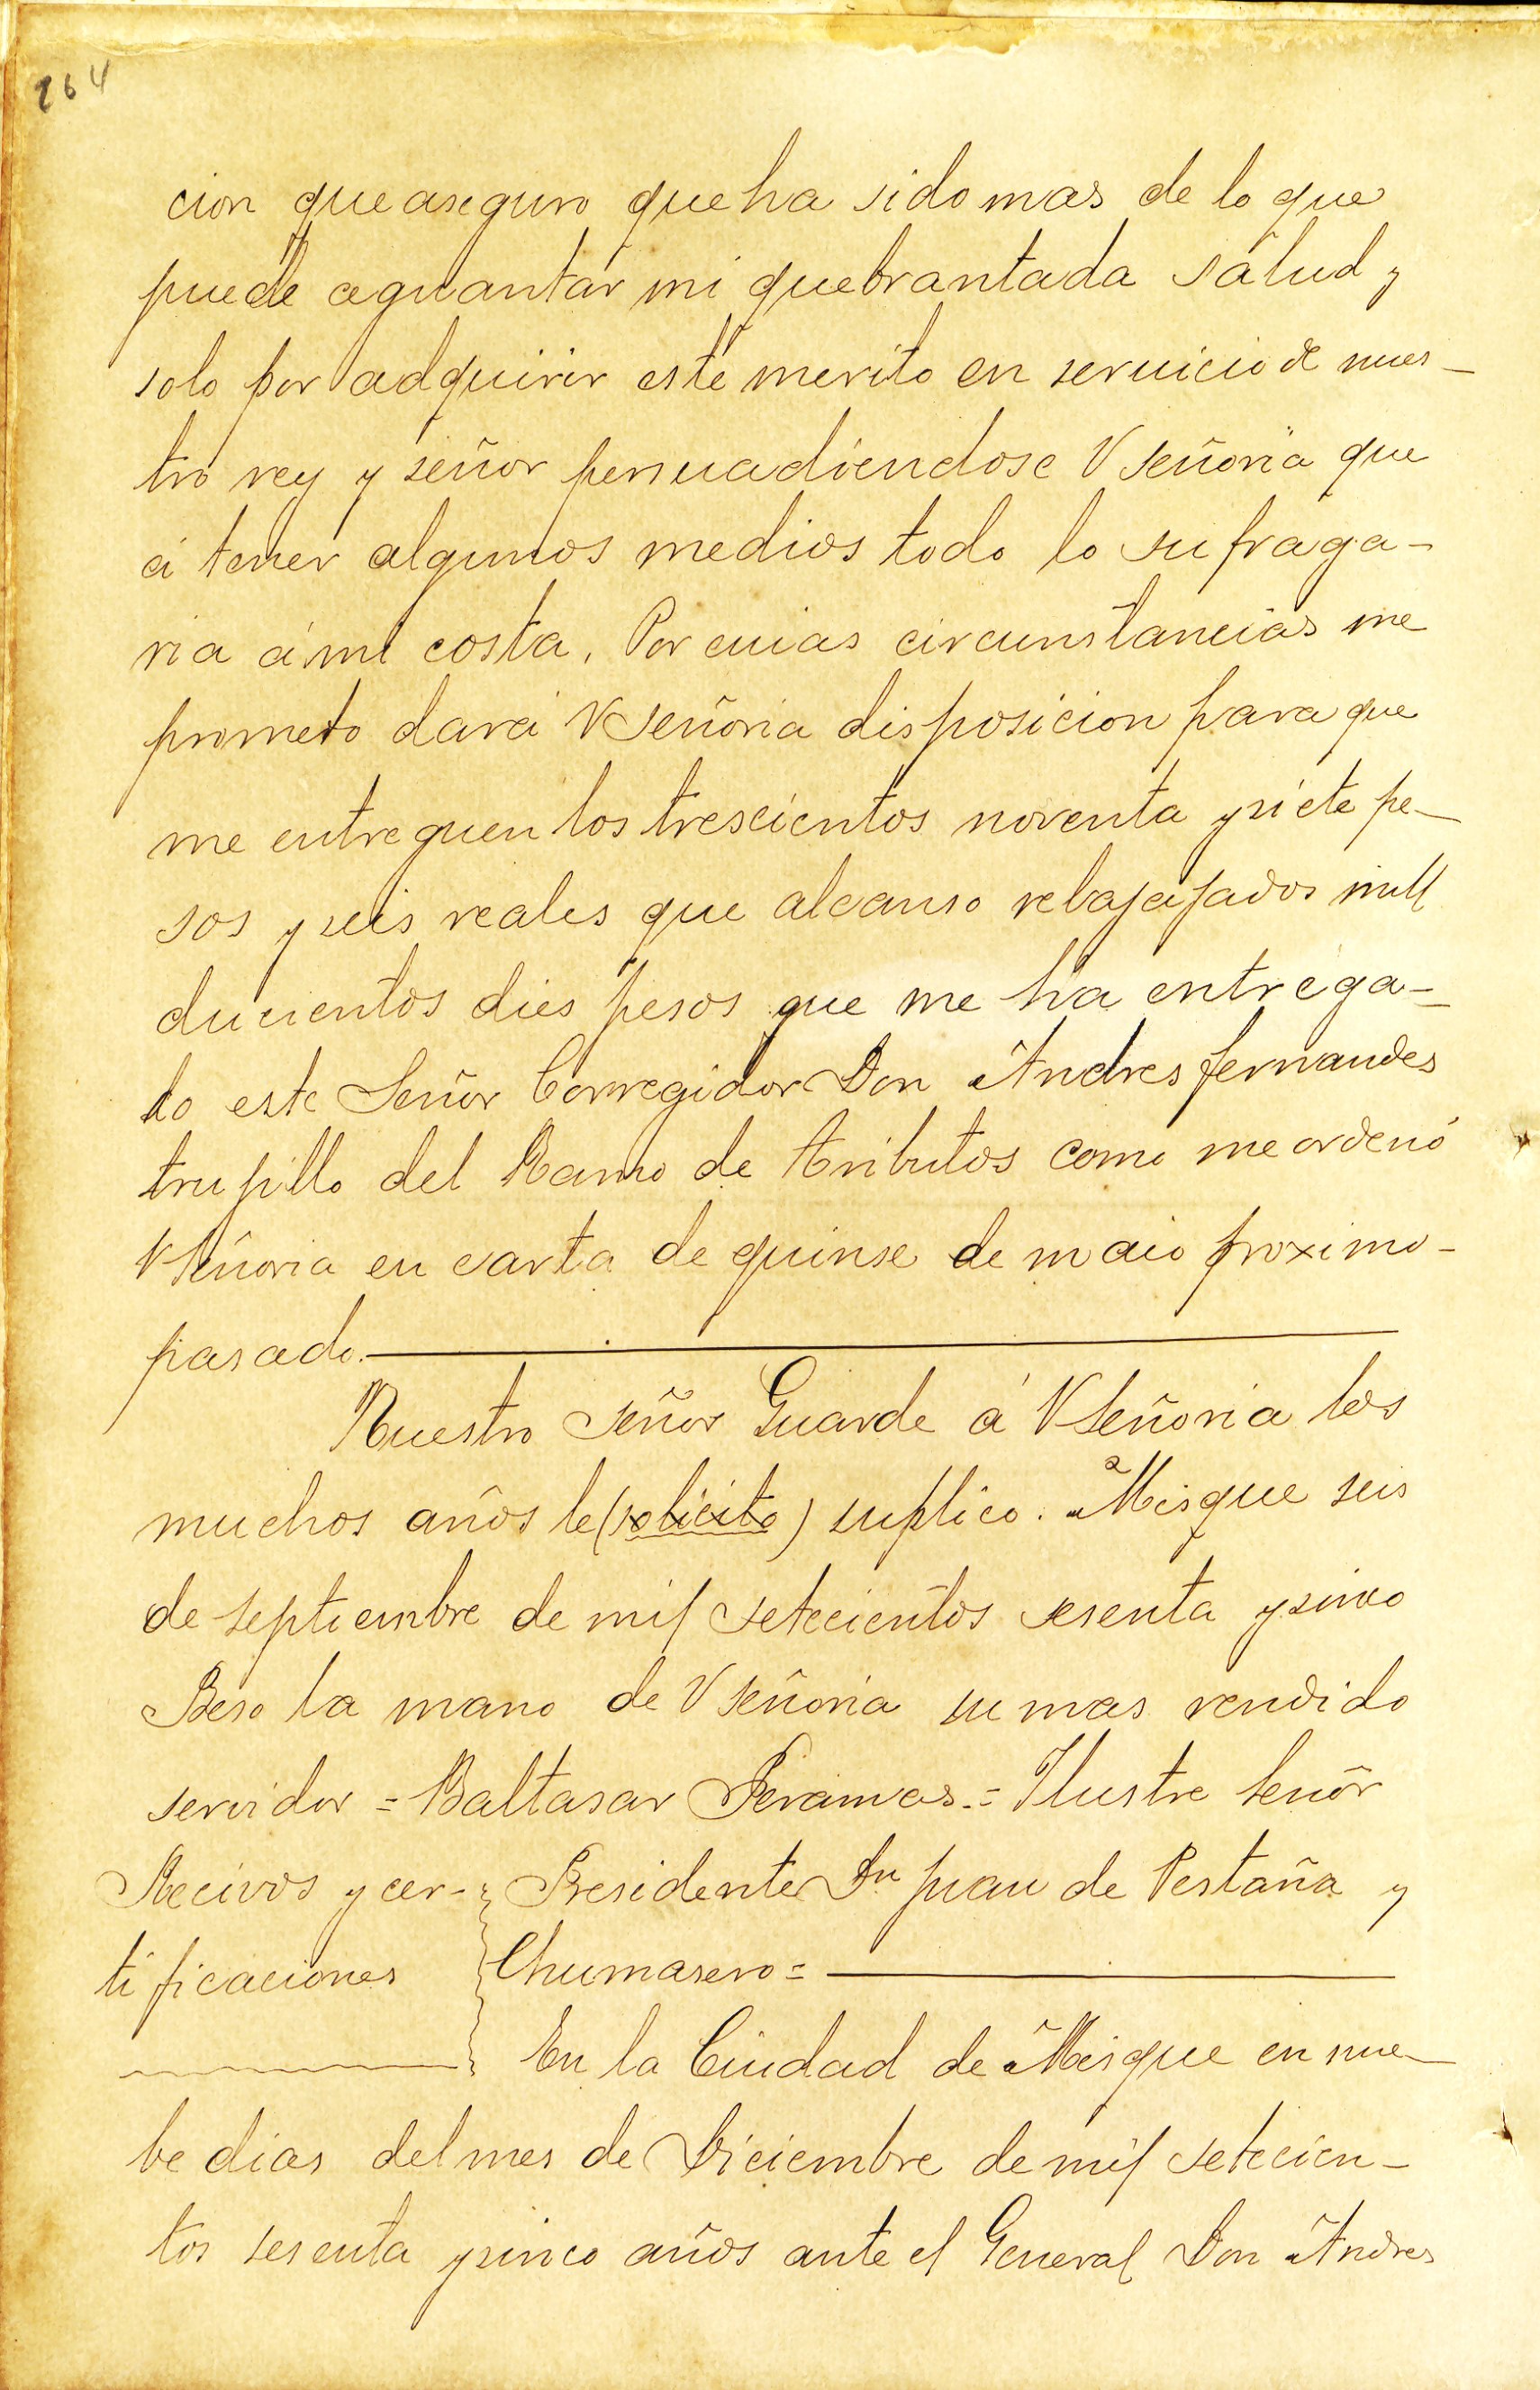 264
cion que aseguro que ha sido mas de lo que
puede aguantar mi quebrantada salud y
solo por adquirir este merito en seruicio de nues-
tro rey y señor persuadiendose V Señoria que
á tener algunos medios todo lo sufraga-
ria á mi costa. Por cuias circunstancias me
prometo dará V Señoria disposicion para que
me entreguen los trescientos noventa y siete pe-
sos y seis reales que alcanso rebajajados mill
ducientos dies pesos que me ha entrega-
do este Señor Corregidor Don Andres fernandes
trujillo del Ramo de tributos como me ordenó
V Señoria en carta de quinse de maio proximo-
pasado.
Nuestro Señor Guarde á V Señoria los
muchos años le (solicito) suplico. Misque seis
de septiembre de mil setecientos sesenta y sinco
Beso la mano de V Señoria su mas rendido
servidor = Baltasar Peramas = Ilustre Señor
Recivos y cer- Presidente Dn Juan de Pestaña y
tificaciones Chumasero =
En la Ciudad de Misque en nue-
be dias del mes de Diciembre de mil setecien-
tos sesenta y sinco años ante el General Don Andres